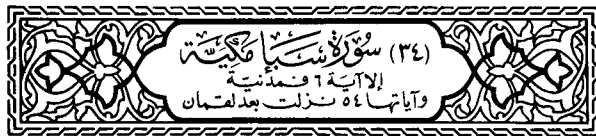 (٣٤) سُورَة سَبَإ مَكيَّة
إلا آية ٦ فمدنية
وآياتها ٥٤ نزلت بعد لقمان